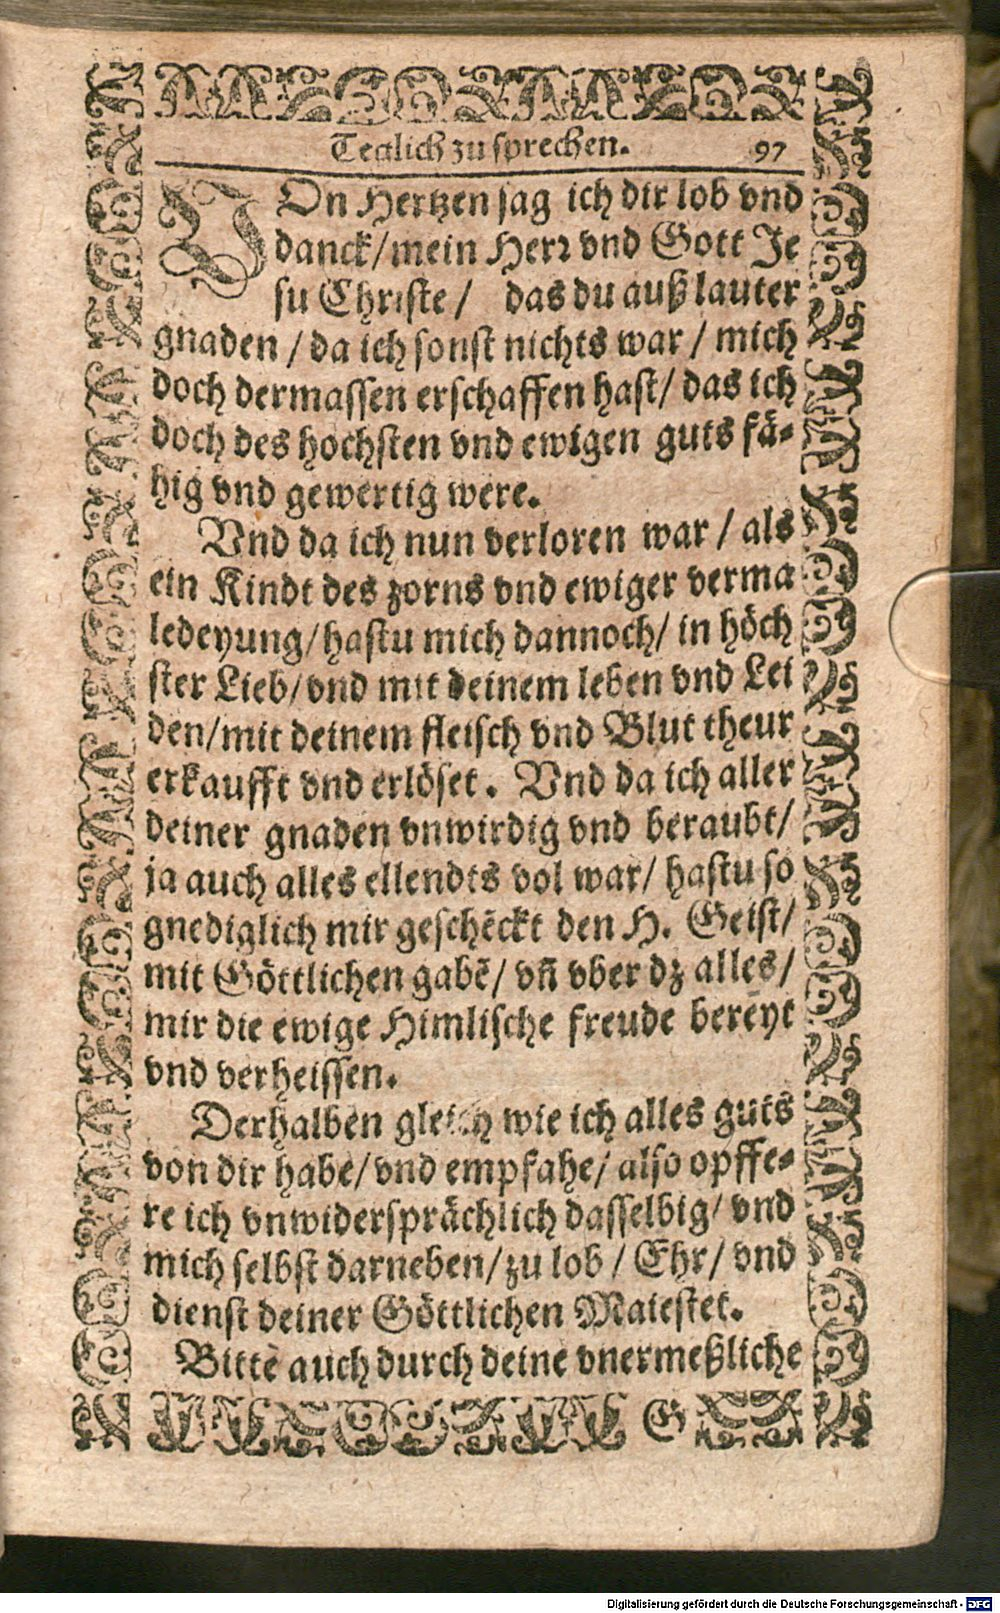 Teglich zu sprechen. 97
VOn Hertzen sag ich dir lob vnd
danck/mein Herr vnd Gott Je
su Christe / das du auß lauter
gnaden / da ich sonst nichts war / mich
doch dermassen erschaffen hast/ das ich
doch des hochsten vnd ewigen guts fä-
hig vnd gewertig were.
Vnd da ich nun verloren war / als
ein Kindt des zorns vnd ewiger verma
ledeyung/hastu mich dannoch/ in höch
ster Lieb/vnd mit deinem leben vnd Lei
den/mit deinem fleisch vnd Blut theur
erkaufft vnd erlöset. Vnd da ich aller
deiner gnaden vnwirdig vnd beraubt/
ja auch alles ellendts vol war/ hastu so
gnediglich mir geschēckt den H. Geist/
mit Göttlichen gabē/ vñ vber dz alles/
mir die ewige Himlische freude bereyt
vnd verheissen.
Derhalben gleich wie ich alles guts
von dir habe/vnd empfahe/ also opffe-
re ich vnwidersprächlich dasselbig/ vnd
mich selbst darneben/zu lob / Ehr/ vnd
dienst deiner Göttlichen Maiestet.
Bitte auch durch deine vnermeßliche
G
Digitalisierung gefördert durch die Deutsche Forschungsgemeinschaft - DFG